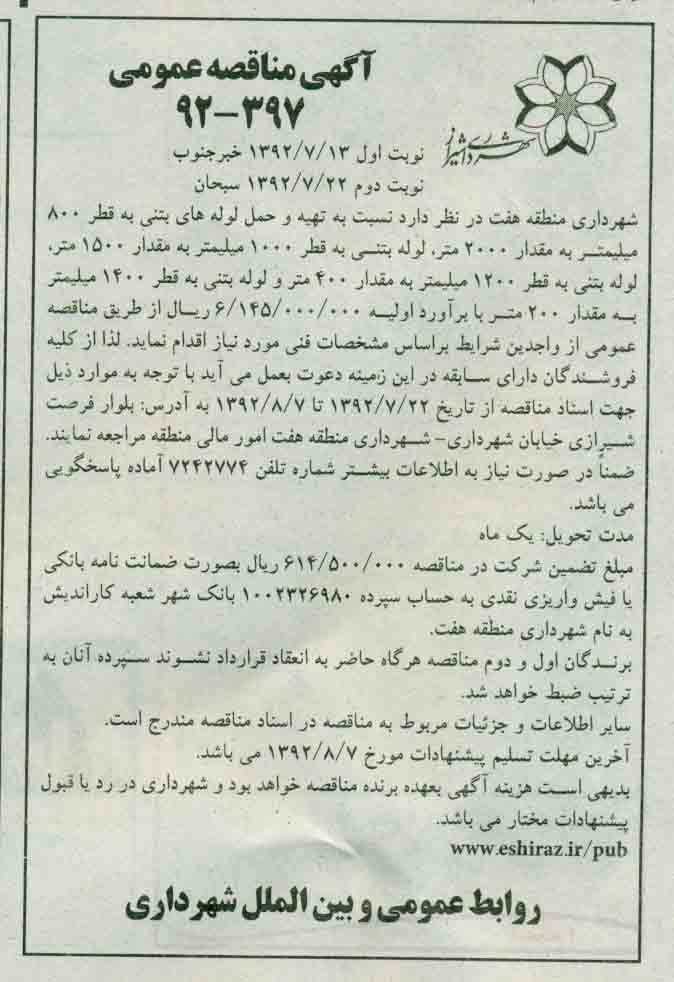 آگهی مناقصه عمومی
۹۲-۳۹۷
شهرداری شیراز
نوبت اول ۱۳۹۲/۷/۱۳ خبرجنوب
نوبت دوم ۱۳۹۲/۷/۲۲ سبحان
شهرداری منطقه هفت در نظر دارد نسبت به تهیه و حمل لوله های بتنی به قطر ۸۰۰
میلیمتر به مقدار ۲۰۰۰ متر، لوله بتنی به قطر ۱۰۰۰ میلیمتر به مقدار ۱۵۰۰ متر،
لوله بتنی به قطر ۱۲۰۰ میلیمتر به مقدار ۴۰۰ متر و لوله بتنی به قطر ۱۴۰۰ میلیمتر
به مقدار ۲۰۰ متر با برآورد اولیه ۶/۱۴۵/۰۰۰/۰۰۰ ریال از طریق مناقصه
عمومی از واجدین شرایط براساس مشخصات فنی مورد نیاز اقدام نماید. لذا از کلیه
فروشندگان دارای سابقه در این زمینه دعوت بعمل می آید با توجه به موارد ذیل
جهت اسناد مناقصه از تاریخ ۱۳۹۲/۷/۲۲ تا ۱۳۹۲/۸/۷ به آدرس: بلوار فرصت
شیرازی خیابان شهرداری- شهرداری منطقه هفت امور مالی منطقه مراجعه نمایند.
ضمناً در صورت نیاز به اطلاعات بیشتر شماره تلفن ۷۲۴۲۷۷۴ آماده پاسخگویی
می باشد.
مدت تحویل: یک ماه
مبلغ تضمین شرکت در مناقصه ۶۱۴/۵۰۰/۰۰۰ ریال بصورت ضمانت نامه بانکی
یا فیش واریزی نقدی به حساب سپرده ۱۰۰۲۳۲۶۹۸۰ بانک شهر شعبه کاراندیش
به نام شهرداری منطقه هفت.
برندگان اول و دوم مناقصه هرگاه حاضر به انعقاد قرارداد نشوند سپرده آنان به
ترتیب ضبط خواهد شد.
سایر اطلاعات و جزئیات مربوط به مناقصه در اسناد مناقصه مندرج است.
آخرین مهلت تسلیم پیشنهادات مورخ ۱۳۹۲/۸/۷ می باشد.
بدیهی است هزینه آگهی بعهده برنده مناقصه خواهد بود و شهرداری در رد یا قبول
پیشنهادات مختار می باشد.
www.eshiraz.ir/pub
روابط عمومی و بین الملل شهرداری